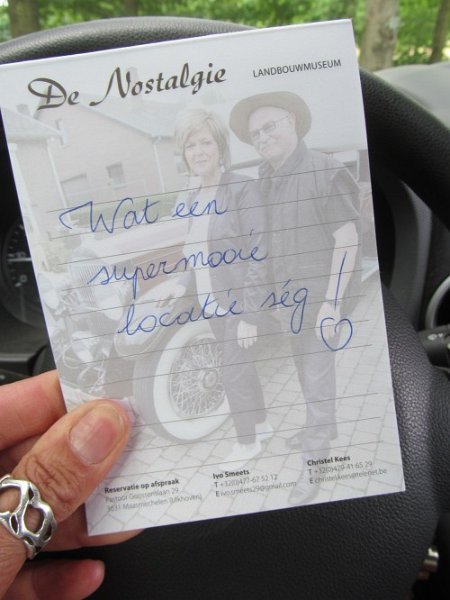 De Nostalgie LANDBOUWMUSEUM
Wat een
supermooie
locatie ség !
Reservatie op afspraak
Pastoor Gijsselslaan 29
3631 Maasmechelen (Uikhoven)
Ivo Smeets
T +32(0)477-67 52 12
E ivo.smeets29@gmail.com
Christel Kees
T +32(0)429-41 65 29
E christel.kees@telenet.be